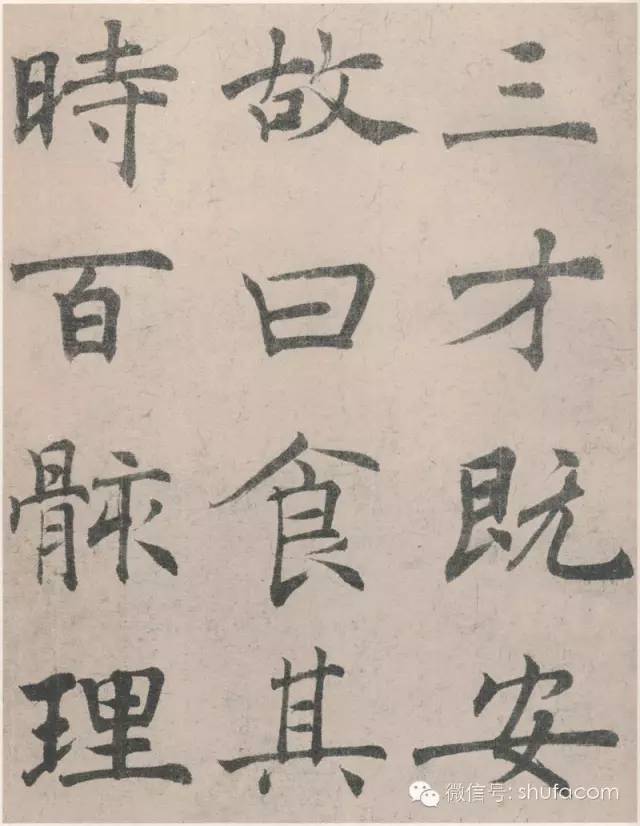 三才既安
故曰食其
時百骸理
微信号: shufacom